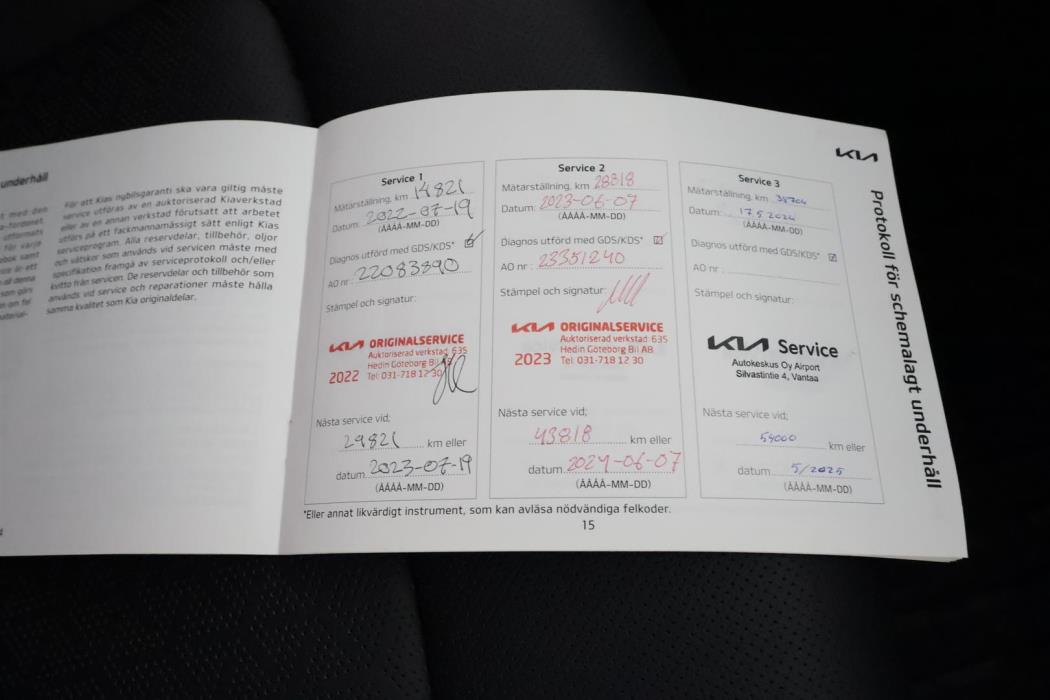 underhåll
För att Kias nybilsgaranti ska vara giltig måste
service utföras av en auktoriserad Kiaverkstad
eller av en annan verkstad förutsatt att arbetet
utförs på ett fackmannamässigt sätt enligt Kias
serviceprogram. Alla reservdelar, tillbehör, oljor
och vätskor som används vid servicen måste med
specifikation framgå av serviceprotokoll och/eller
kvitto från servicen. De reservdelar och tillbehör som
används vid service och reparationer måste hålla
samma kvalitet som Kia originaldelar.
KIA
Protokoll för schemalagt underhåll
Service 1
Mätarställning, km 14821
Datum: 2022-07-19
(ÅÅÅÅ-MM-DD)
Diagnos utförd med GDS/KDS*
AO nr : 22083890
Stämpel och signatur:
KIA ORIGINALSERVICE
Auktoriserad verkstad 635
Hedin Göteborg Bil AB
2022 Tel: 031-718 12 30
Nästa service vid;
29821 km eller
datum 2023-07-19
(ÅÅÅÅ-MM-DD)
Service 2
Mätarställning, km 28818
Datum: 2023-06-07
(ÅÅÅÅ-MM-DD)
Diagnos utförd med GDS/KDS*
AO nr : 23351240
Stämpel och signatur:
KIA ORIGINALSERVICE
Auktoriserad verkstad 635
Hedin Göteborg Bil AB
2023 Tel: 031-718 12 30
Nästa service vid;
43818 km eller
datum 2024-06-07
(ÅÅÅÅ-MM-DD)
Service 3
Mätarställning, km 38704
Datum: 17.5.2024
(ÅÅÅÅ-MM-DD)
Diagnos utförd med GDS/KDS*
AO nr :
Stämpel och signatur:
KIA Service
Autokeskus Oy Airport
Silvastintie 4, Vantaa
Nästa service vid;
54000 km eller
datum 5/2025
(ÅÅÅÅ-MM-DD)
*Eller annat likvärdigt instrument, som kan avläsa nödvändiga felkoder.
15